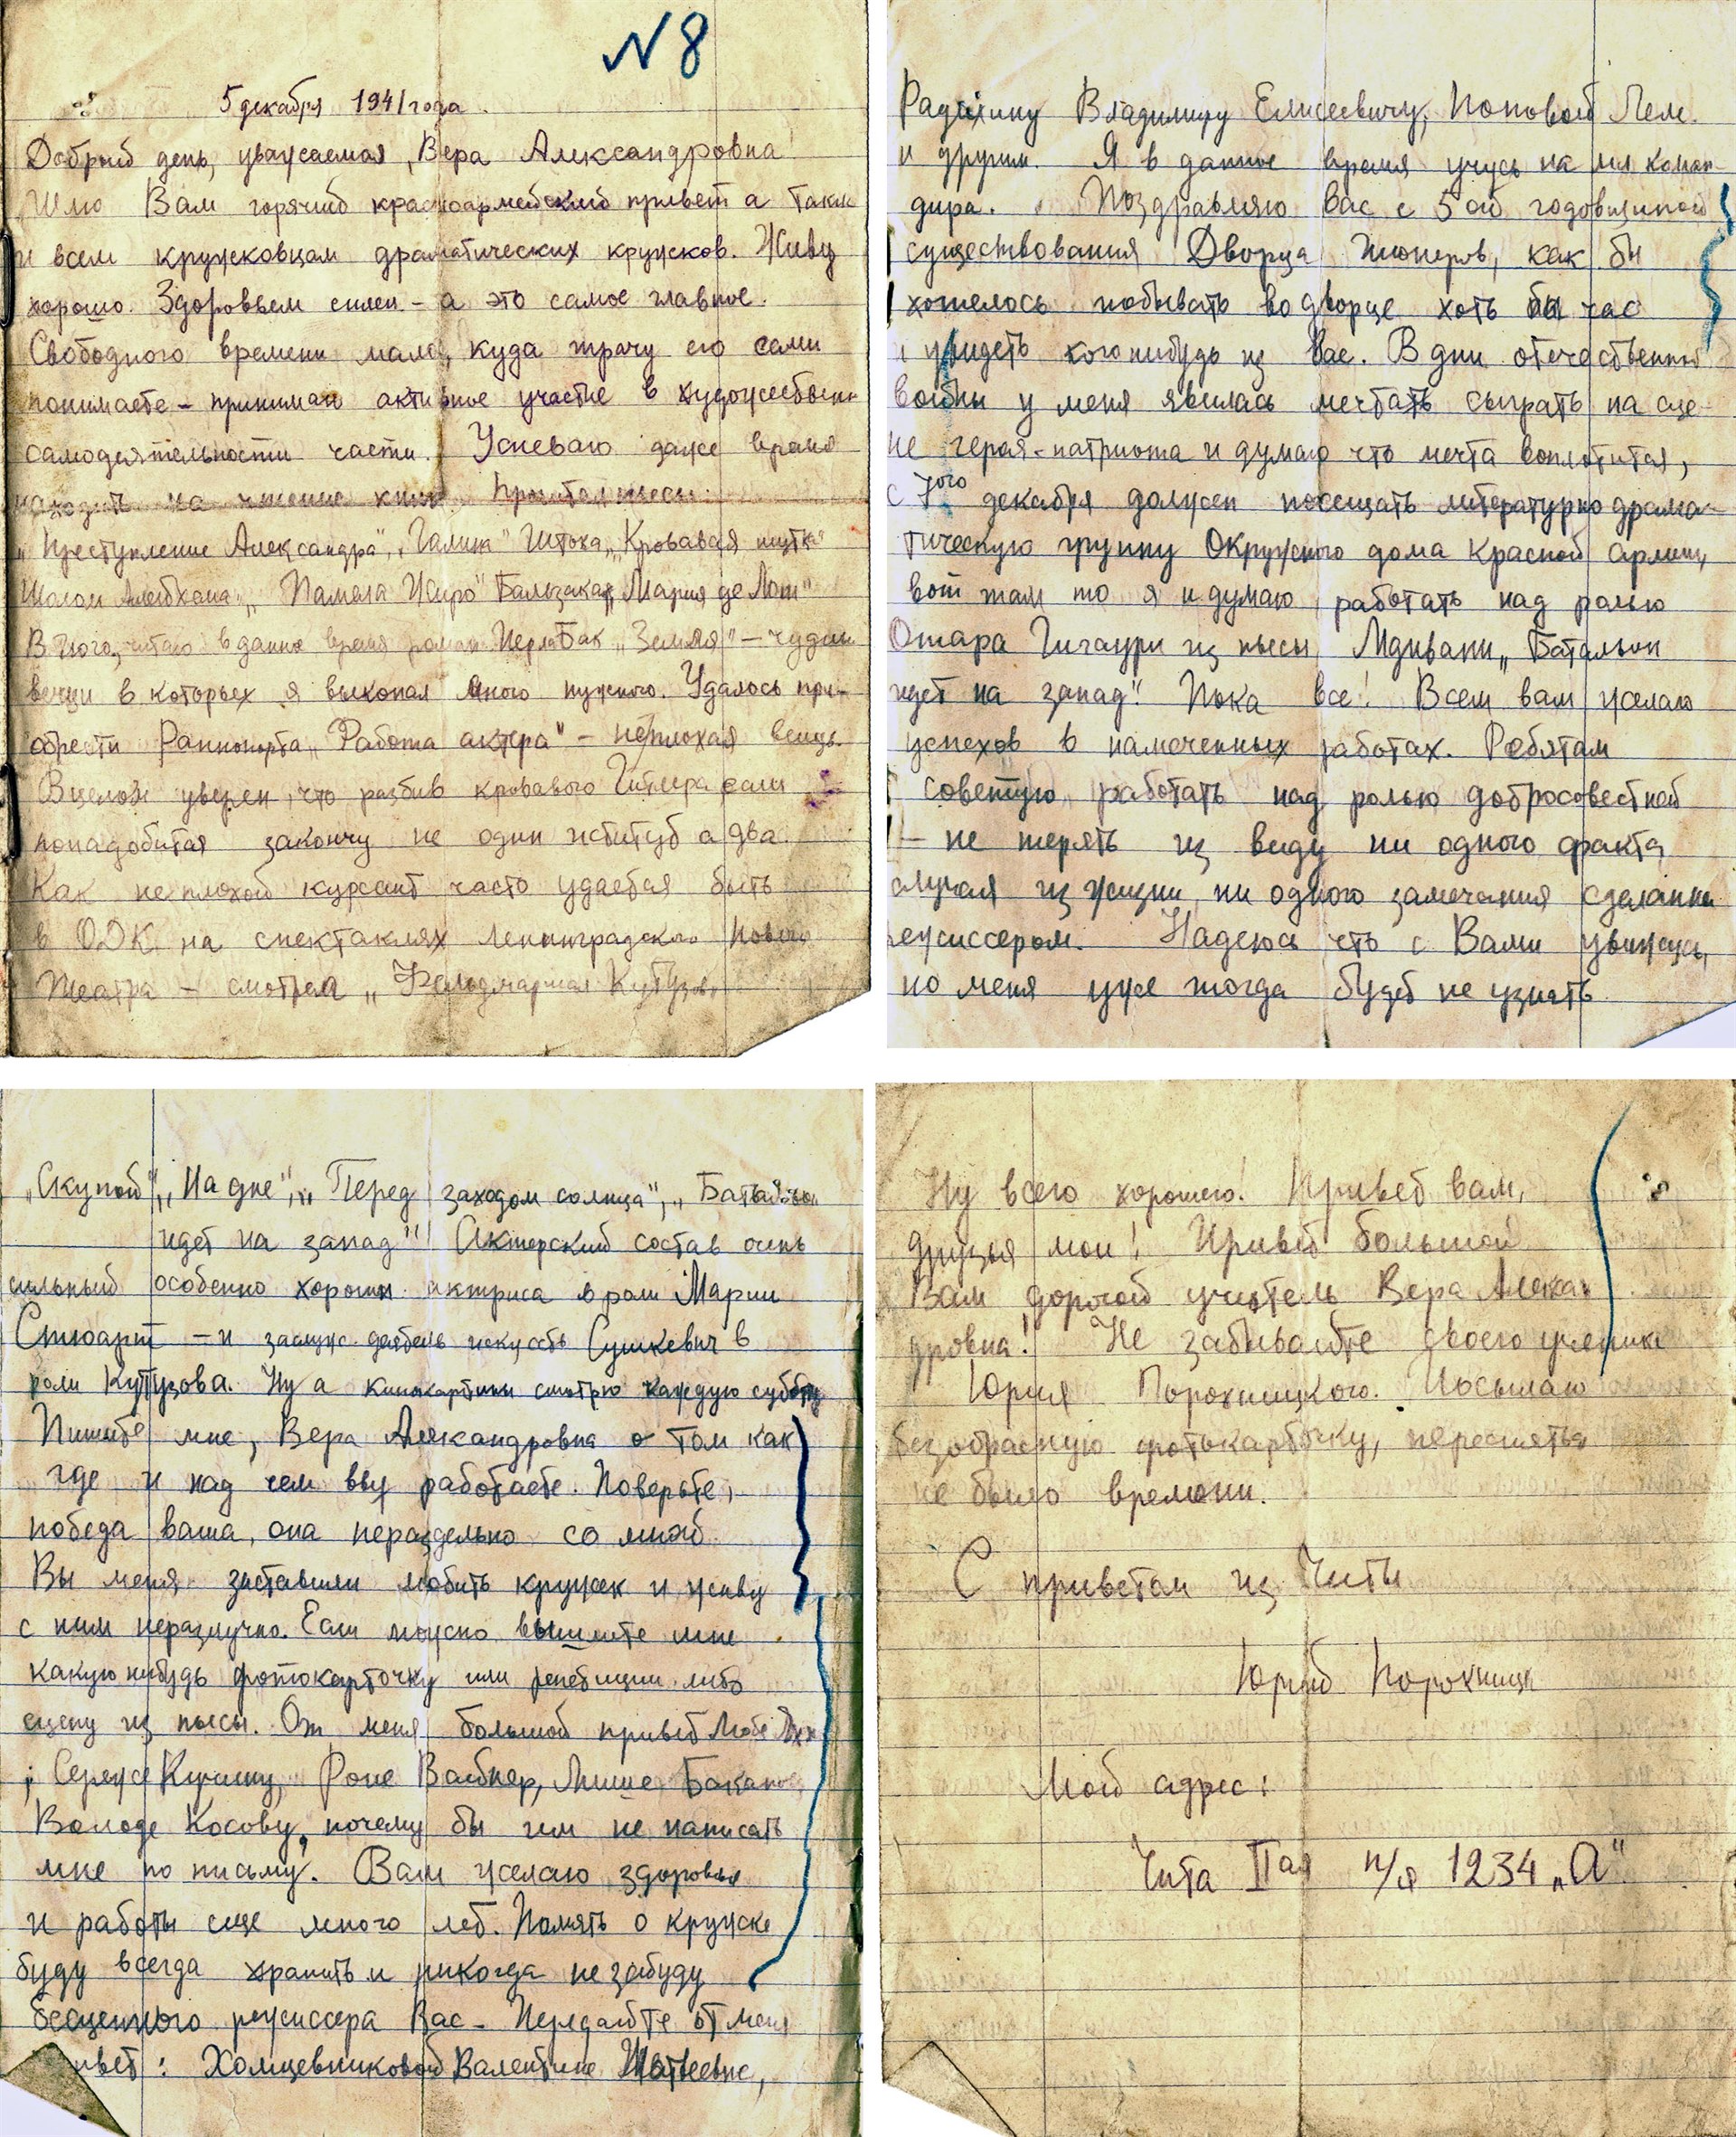 N 8
5 декабря 1941 года.
Добрый день, уважаемая, Вера Александровна
Шлю Вам горячий красноармейский привет а также
и всем кружковцам драматических кружков. Живу
хорошо. Здоровьем силен – а это самое главное.
Свободного времени мало, куда трачу его сами
понимаете – принимаю активное участие в художествен
самодеятельности части. Успеваю даже время
находить на чтение книг. Прочитал пьесы:
„Преступление Александра", „Галина" Штока „Кровавая шутка
Шолом „Памела Жиро" Бальзака, „Мария де Лом"
В Гюго, читаю в данное время роман Перл Бак „Земля" – чудные
вещи в которых я выкопал много нужного. Удалось при-
обрести Раппопорта „Работа актера" – неплохая вещь.
В целом уверен, что разбив кровавого Гитлера если
понадобится закончу не один иститут а два.
Как неплохой курсант часто удается быть
в ОДК на спектаклях Ленинградского Нового
театра – смотрел „Фельдмаршал Кутузов,
„Скупой", „На дне", „Перед заходом солнца", „Батальон
идет на запад" Актерский состав очень
сильный особенно хороши актриса в роли Марии
Стюарт – и заслуж. деятель искусств Сушкевич в
роли Кутузова. Ну а кинокартины смотрю каждую субботу
Пишите мне, Вера Александровна о том как
где и над чем вы работаете. Поверьте,
победа ваша, она нераздельно со мной
Вы меня заставили любить кружек и живу
с ним неразлучно. Если можно вышлите мне
какую нибудь фотокарточку или репетиции либо
сцену из пьесы. От меня большой привет Любе
Сереже Кучину, Розе Вайбнер, Мише
Володе Косову, почему бы им не написать
мне по письму. Вам желаю здоровья
и работы еще много лет. Память о кружке
буду всегда хранить и никогда не забуду
бесценного режиссера Вас – Передайте от меня
ивет: Холщевниковой Валентине Матвеевне,
Радихину Владимиру Елисеевичу, Поповой Леле.
и другим. Я в данное время учусь на мл коман-
дира. Поздравляю вас с 5ой годовщиной
существования Дворца Пионеров, как бы
хотелось побывать во дворце хоть бы час
и увидеть кого нибудь из Вас. В дни отечественной
войны у меня явилась мечтать сыграть на сце-
не героя-патриота и думаю что мечта воплотится,
с 7ого декабря должен посещать литературно драма-
тическую группу Окружного дома Красной армии,
вот там то я и думаю работать над ролью
Отара Гигаури из пьесы Мдивани „Батальон
идет на запад". Пока все! Всем вам желаю
успехов в намеченных работах. Ребятам
советую работать над ролью добросовестней
– не терять из виду ни одного факта
случая из жизни, ни одного замечания сделанн
режиссером. Надеюсь что с Вами увижусь,
но меня уже тогда будет не узнать
Ну всего хорошего! Привет вам,
друзья мои! Привет большой
Вам дорогой учитель Вера Алексан
дровна! Не забывайте своего ученика
Юрия Порохницкого. Посылаю
безобразную фотокарточку, пересняться
не было времени.
С приветом из Читы
Юрий Порохниц
Мой адрес:
Чита IIая п/я 1234 „А"